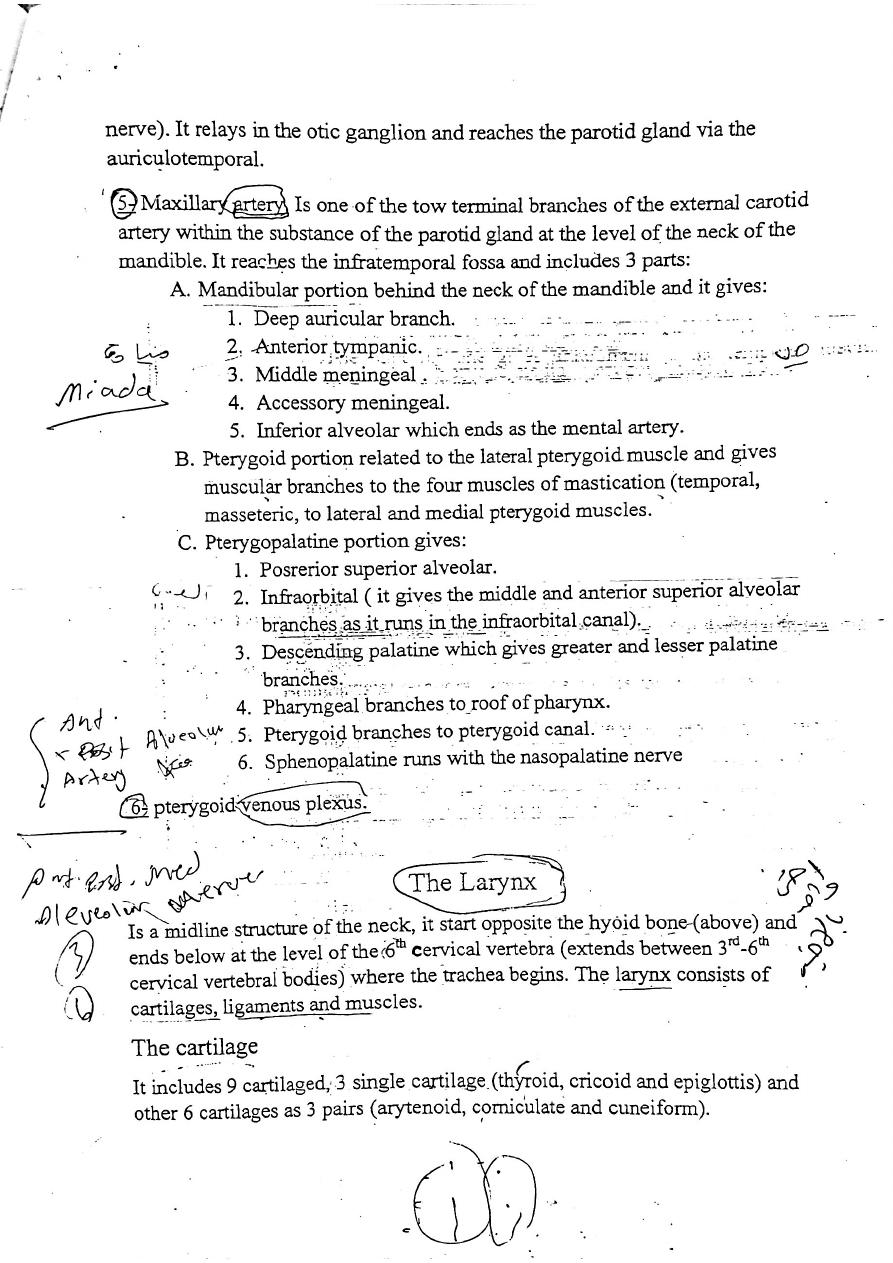 nerve). It relays in the otic ganglion and reaches the parotid gland via the
auriculotemporal.
5- Maxillary artery Is one of the tow terminal branches of the external carotid
artery within the substance of the parotid gland at the level of the neck of the
mandible. It reaches the infratemporal fossa and includes 3 parts:
A. Mandibular portion behind the neck of the mandible and it gives:
1. Deep auricular branch.
2. Anterior tympanic.
3. Middle meningeal.
Miada
4. Accessory meningeal.
5. Inferior alveolar which ends as the mental artery.
B. Pterygoid portion related to the lateral pterygoid muscle and gives
muscular branches to the four muscles of mastication (temporal,
masseteric, to lateral and medial pterygoid muscles.
C. Pterygopalatine portion gives:
1. Posrerior superior alveolar.
2. Infraorbital ( it gives the middle and anterior superior alveolar
branches as it runs in the infraorbital canal).
3. Descending palatine which gives greater and lesser palatine
branches.
4. Pharyngeal branches to roof of pharynx.
5. Pterygoid branches to pterygoid canal.
6. Sphenopalatine runs with the nasopalatine nerve
Ant.
Post Alveolar
Artery
6- pterygoid venous plexus.
Med
nerve
The Larynx
Is a midline structure of the neck, it start opposite the hyoid bone (above) and
ends below at the level of the 6th cervical vertebra (extends between 3rd-6th
cervical vertebral bodies) where the trachea begins. The larynx consists of
cartilages, ligaments and muscles.
The cartilage
It includes 9 cartilaged, 3 single cartilage (thyroid, cricoid and epiglottis) and
other 6 cartilages as 3 pairs (arytenoid, corniculate and cuneiform).